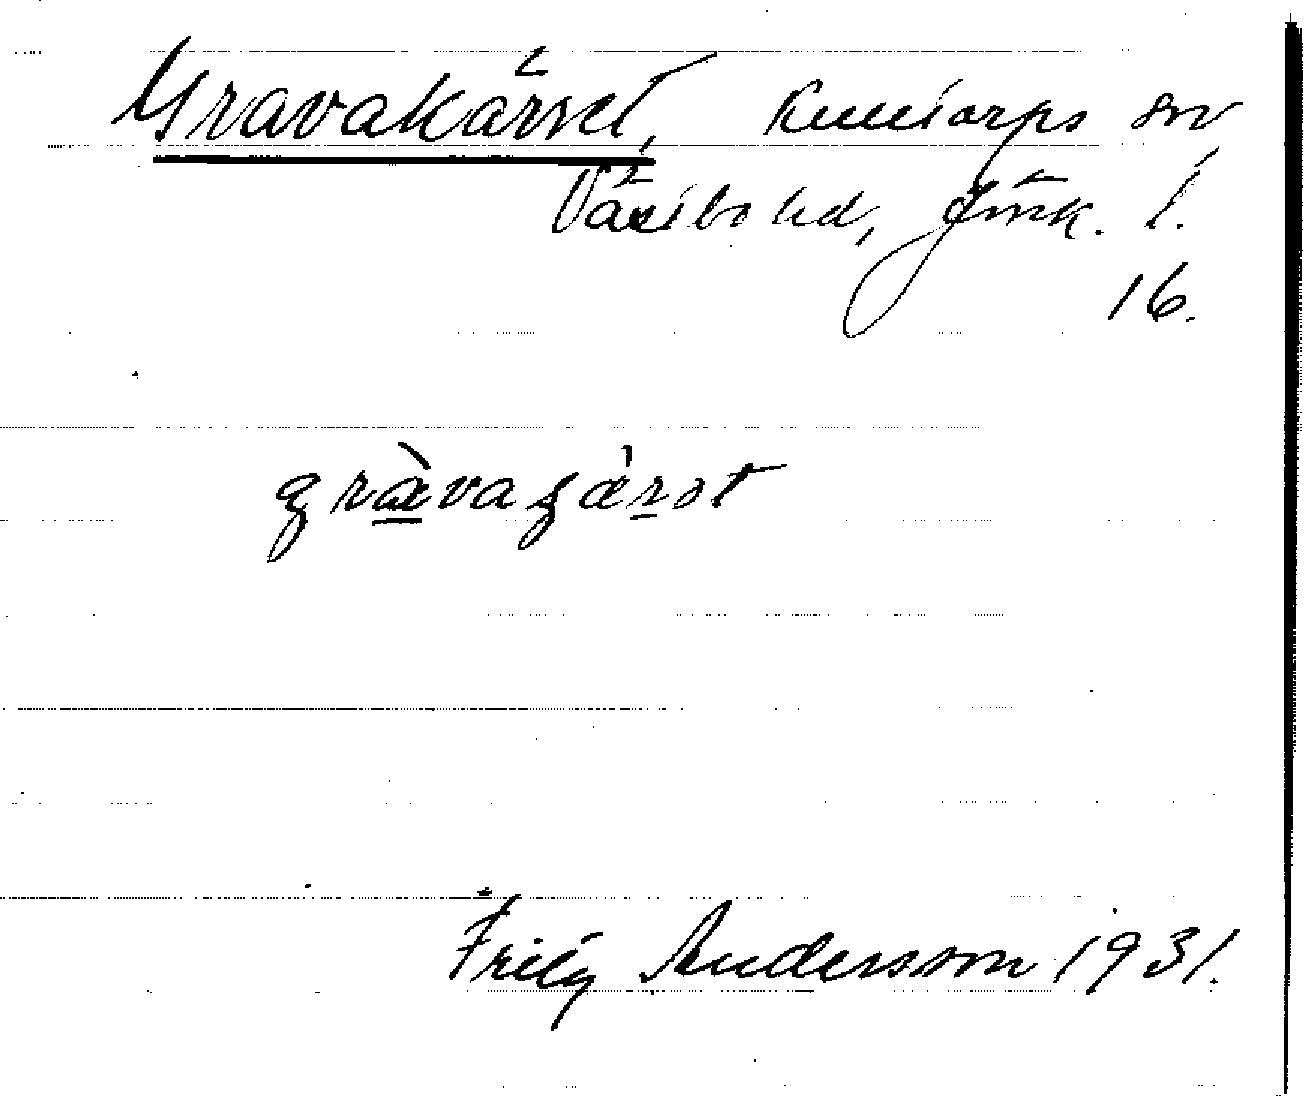 Gravakärret, Kulltorps sn
Västbo hd, Jönk. l.
16.
gràvaʒá̱rət
Fritz Andersson 1931.